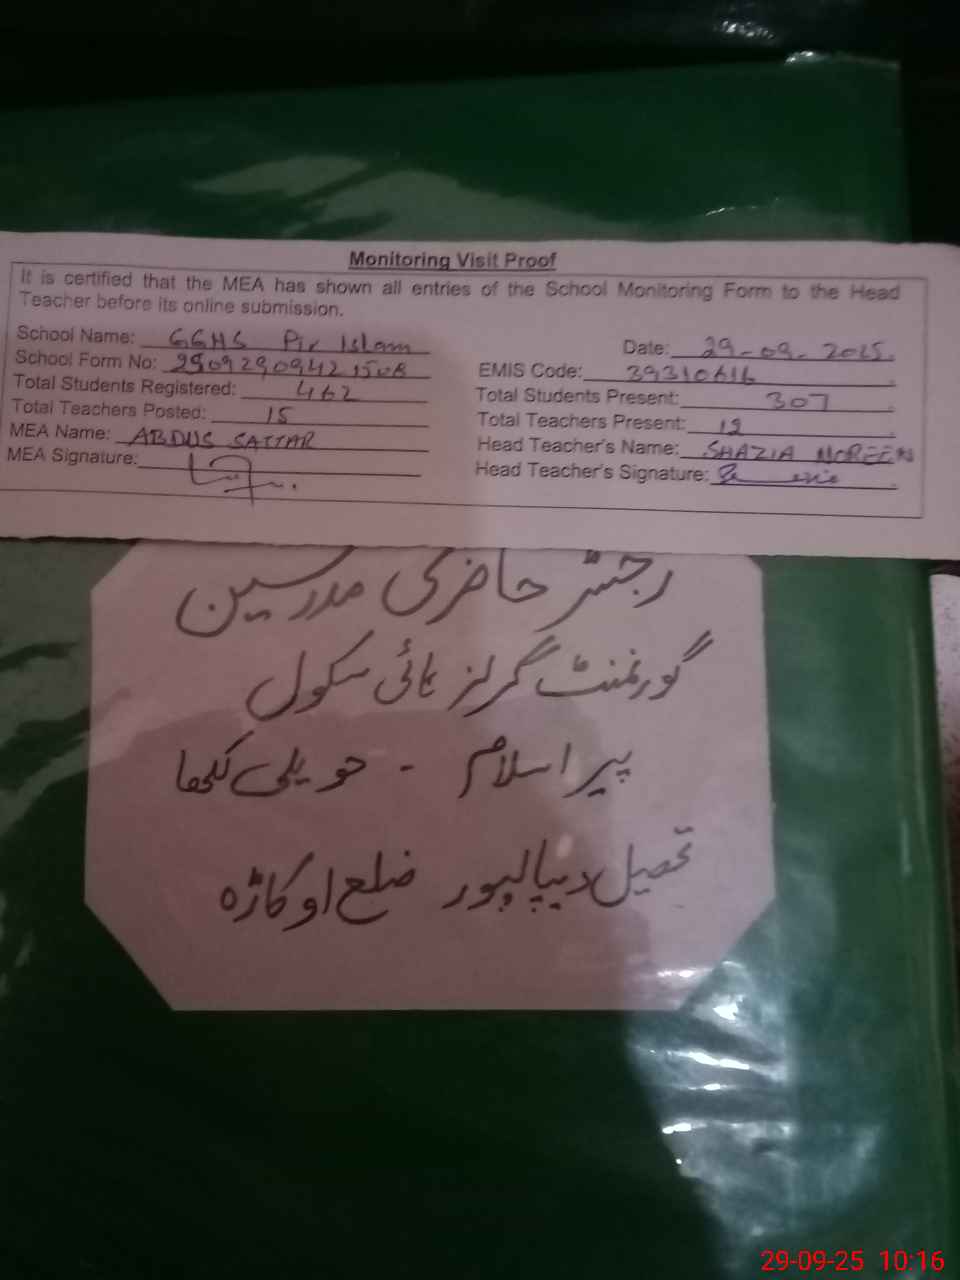 Monitoring Visit Proof
It is certified that the MEA has shown all entries of the School Monitoring Form to the Head
Teacher before its online submission.
School Name: GGHS Pir Islam
Date: 29-09-2025
School Form No:
EMIS Code: 39310616
Total Students Registered: 462
Total Students Present: 307
Total Teachers Posted: 15
Total Teachers Present:
MEA Name: ABDUS SATTAR
Head Teacher's Name: SHAZIA NOREEN
MEA Signature:
Head Teacher's Signature:
رجسٹر حاضری مدرسین
گورنمنٹ گرلز ہائی سکول
پیر اسلام - حویلی لکھا
تحصیل دیپالپور ضلع اوکاڑہ
29-09-25 10:16